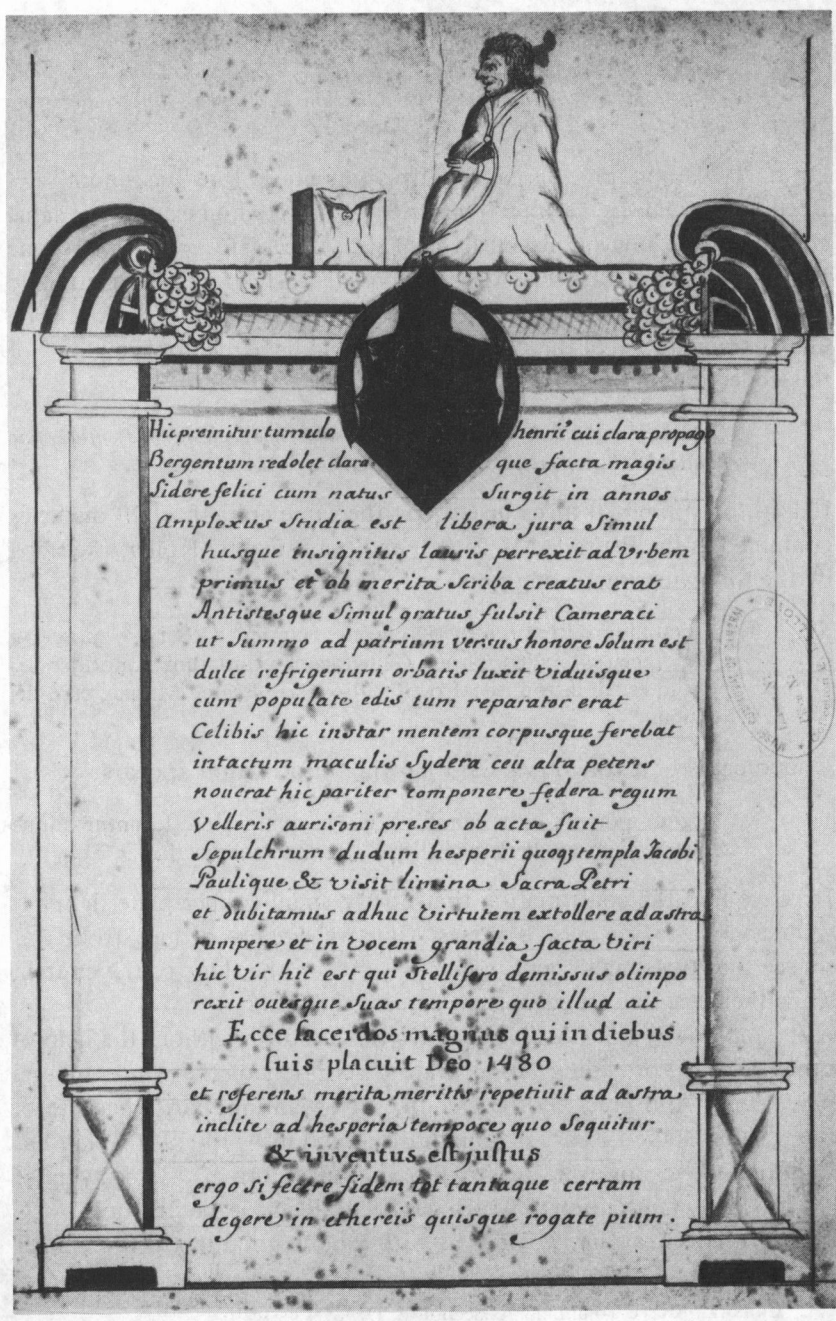 Hic premitur tumulo henric⁹ cui clara propago
Bergentum redolet clara que facta magis
Sidere felici cum natus Surgit in annos
Amplexus Studia est libera jura Simul
husque insignitus lauris perrexit ad Urbem
primus et ob merita Scriba creatus erat
Antistesque Simul gratus fulsit Cameraci
ut Summo ad patrium versus honore Solum est
dulce refrigerium orbatis luxit Viduisque
cum populate edis tum reparator erat
Celibis hic instar mentem corpusque ferebat
intactum maculis Sydera ceu alta petens
nouerat hic pariter componere federa regum
Velleris aurisoni preses ob acta fuit
Sepulchrum dudum hesperii quoqꝫ templa Jacobi
Paulique & visit limina Sacra Petri
et dubitamus adhuc Virtutem extollere ad astra
rumpere et in Vocem grandia facta Viri
hic Vir hic est qui Stellifero demissus olimpo
rexit ouesque Suas tempore quo illud ait
Ecce sacerdos magnus qui in diebus
suis placuit Deo 1480
et referens merita meritis repetiuit ad astra
inclite ad hesperia tempore quo Sequitur
& inventus est justus
ergo si fecere fidem tot tantaque certam
degere in ethereis quisque rogate pium.